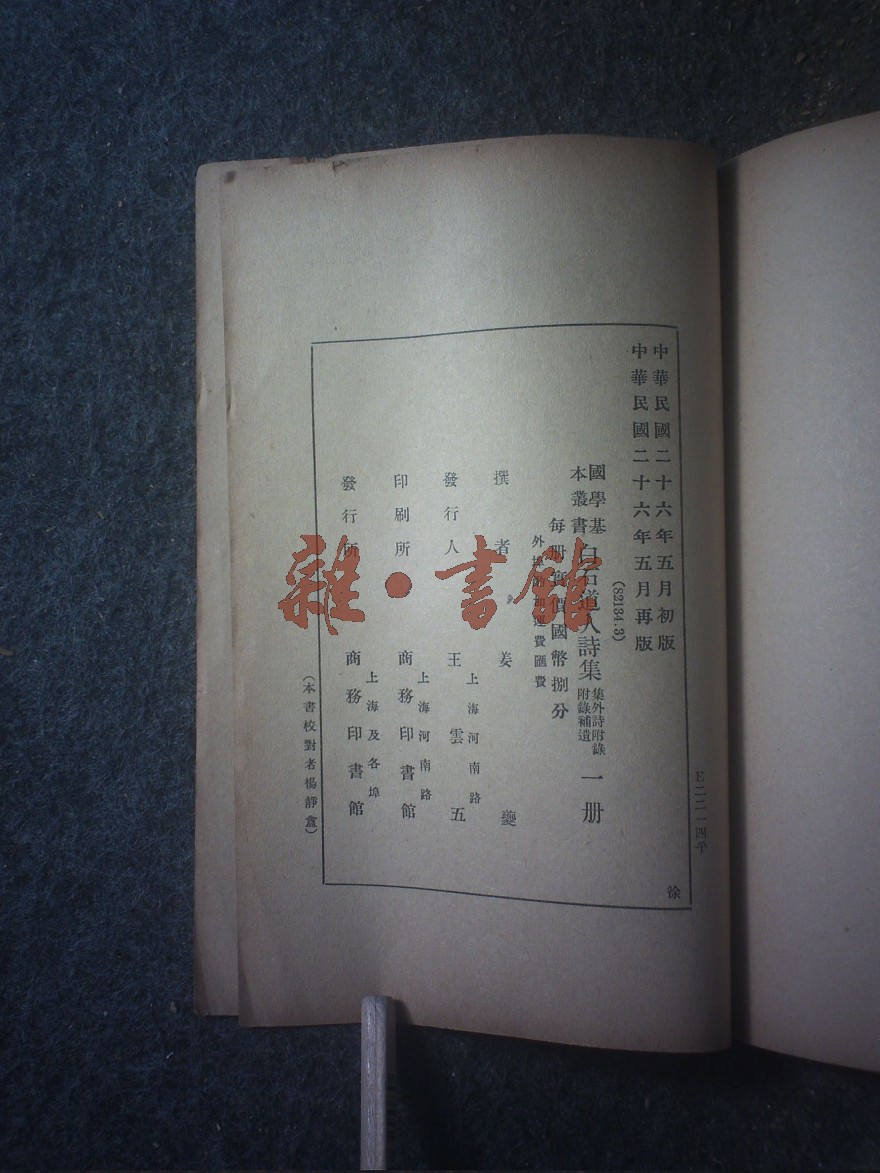 中華民國二十六年五月初版
中華民國二十六年五月再版
(82134.3)
國學基本叢書 白石道人詩集 集外詩附錄 附錄補遺 一册
每册實價國幣捌分
外埠酌加運費匯費
撰者 姜夔
發行人 王雲五
上海河南路
印刷所 商務印書館
上海河南路
發行所 商務印書館
上海及各埠
(本書校對者楊靜盦)
E二二一四平
徐
雜·書館